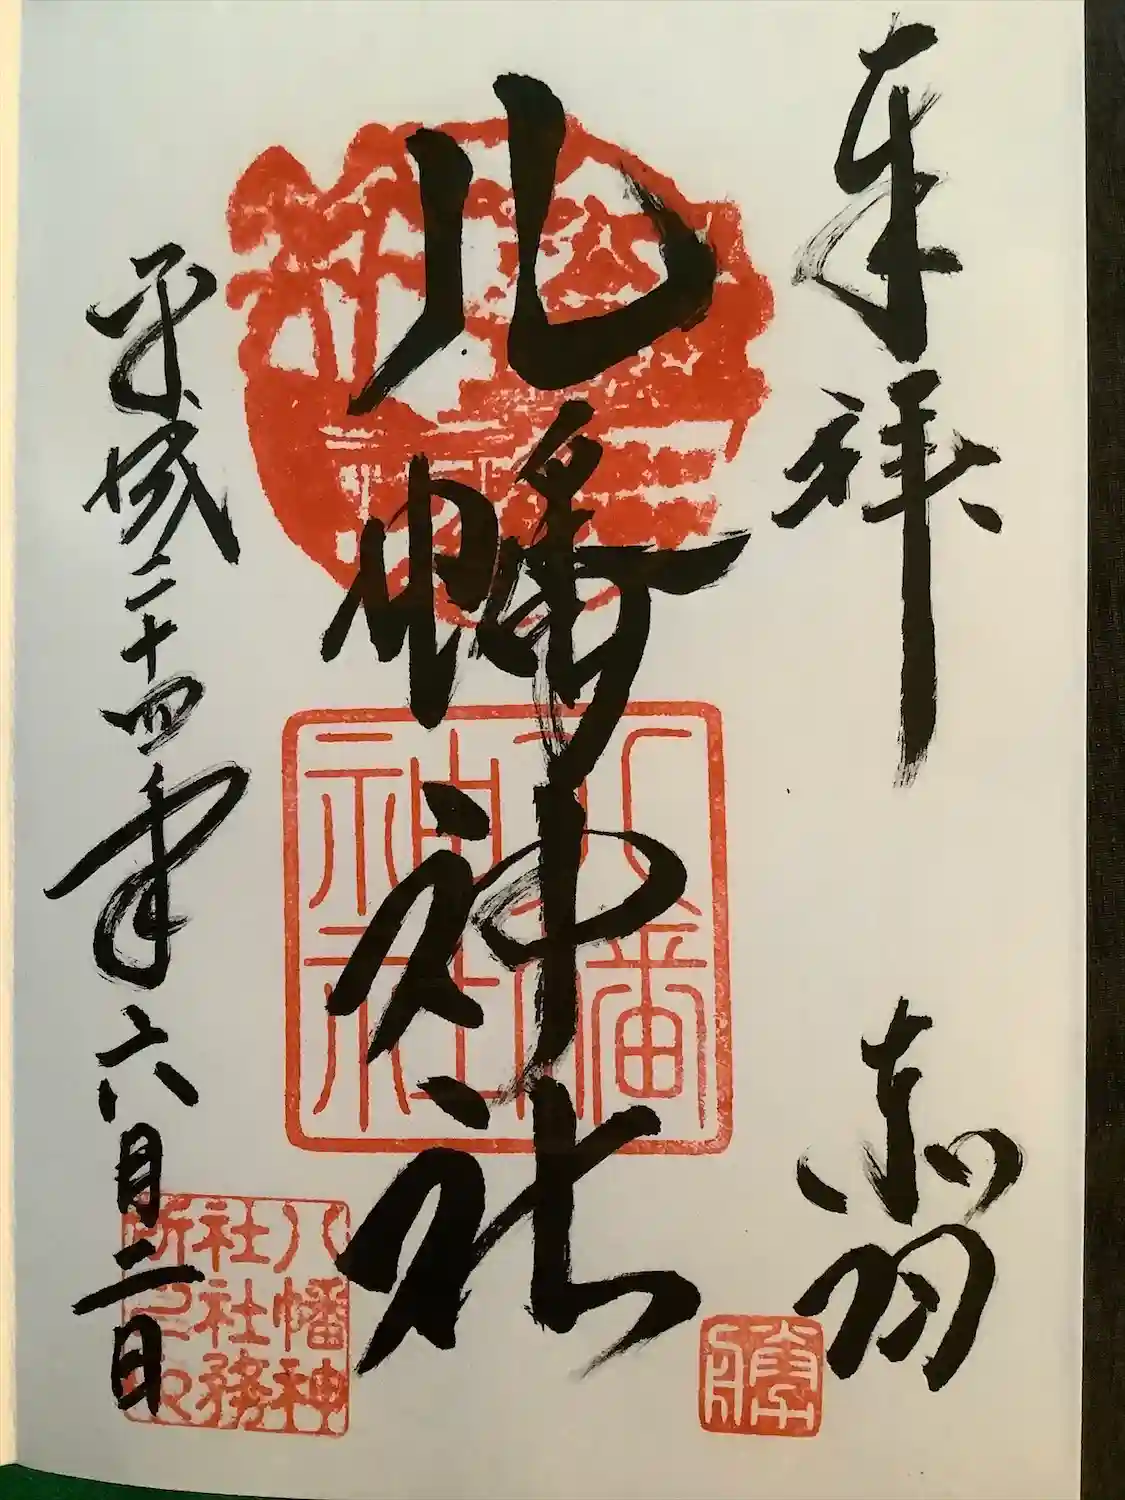 奉拝
赤羽
八幡神社
平成二十四年六月二日
八幡神社
八幡神
社社務
所之印